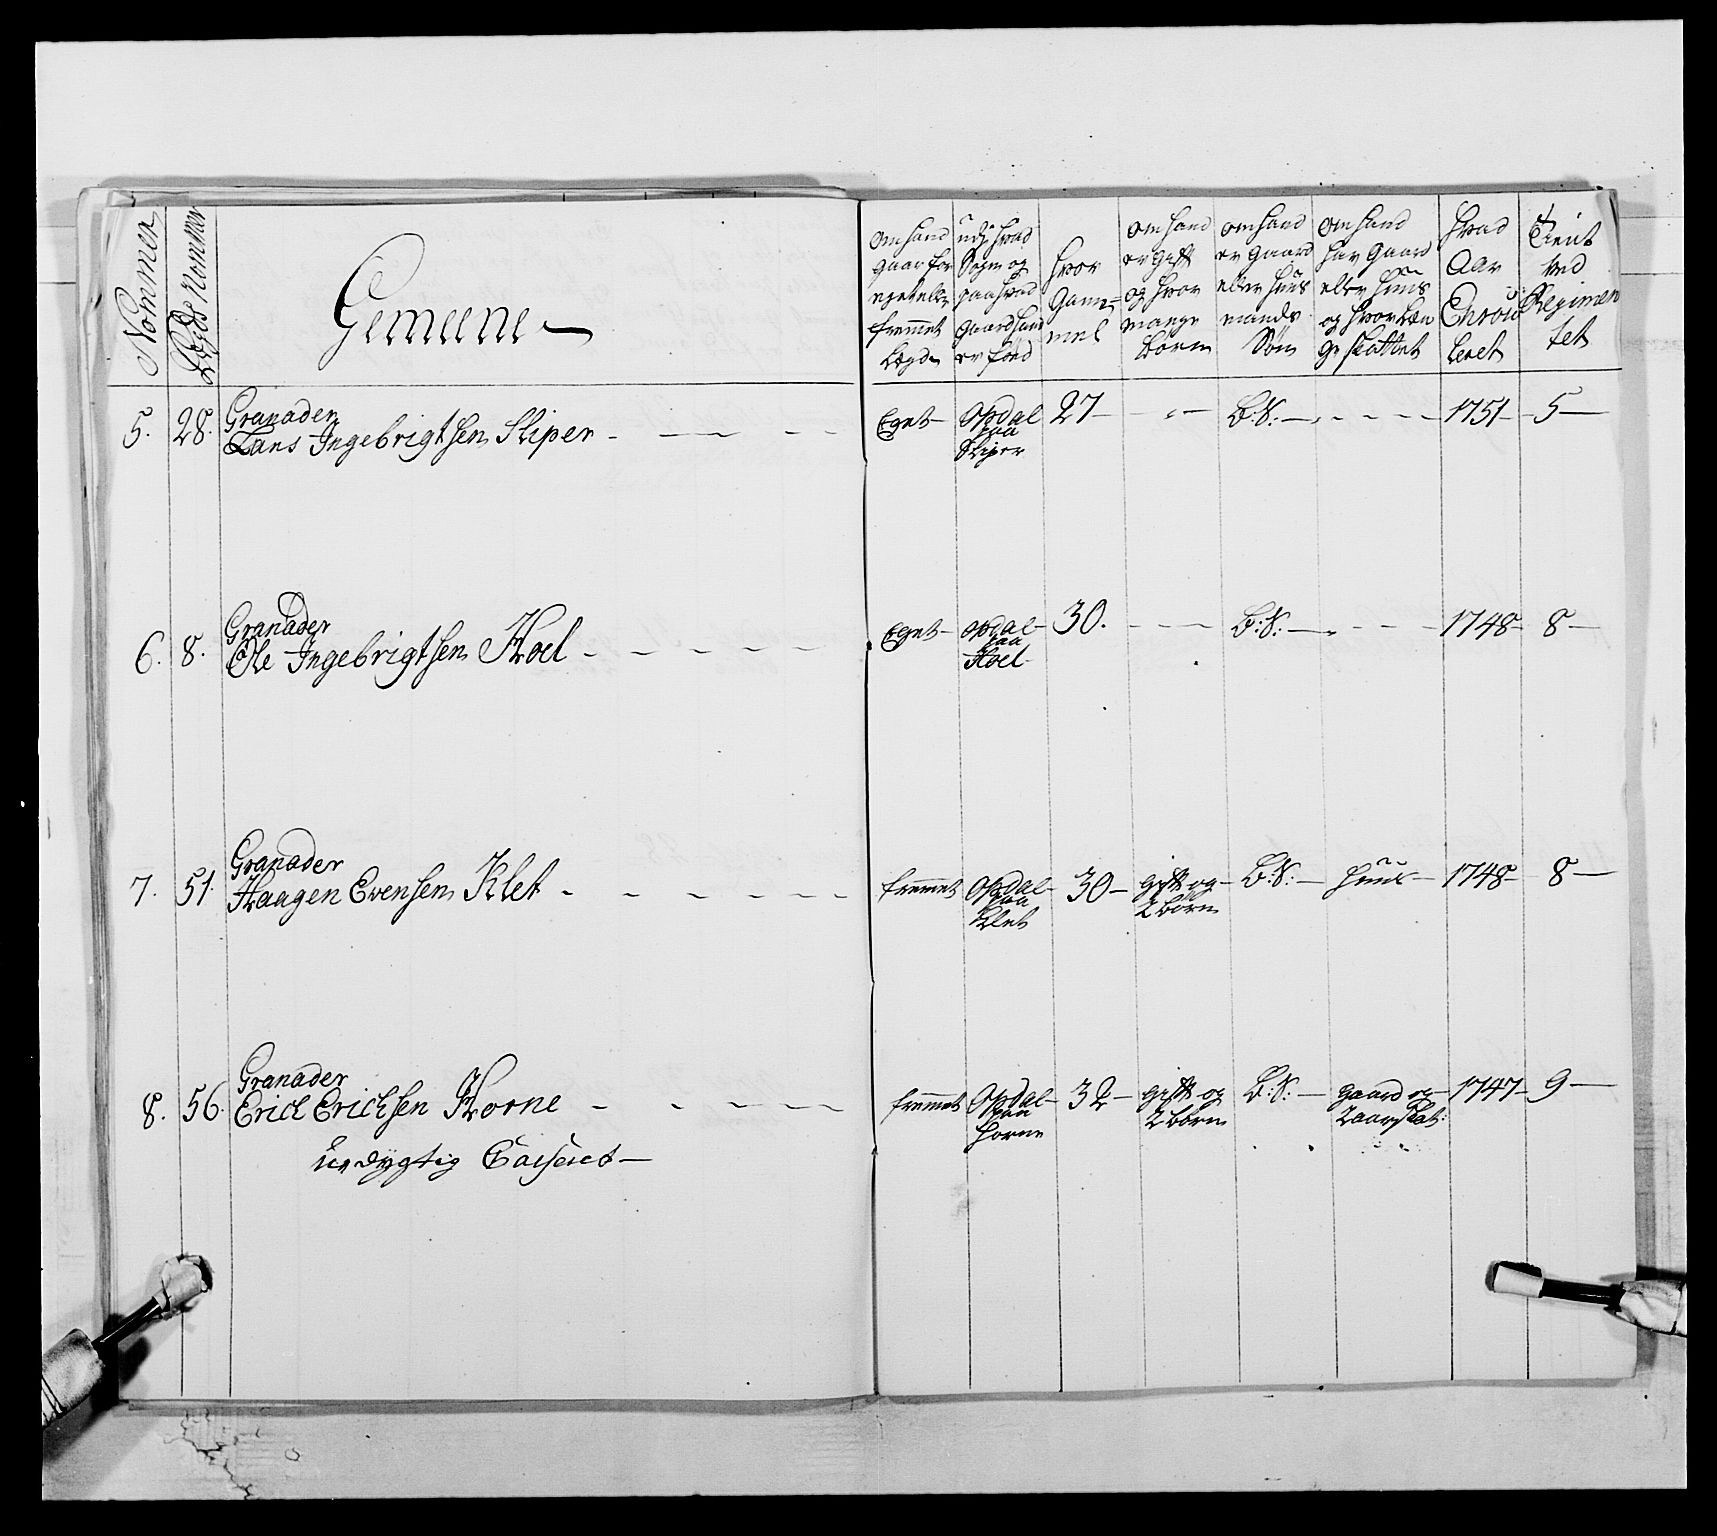 Nommer
Lægds Nommer
Gemeene
om hand
gaar for
eget eller
fremmet
Lægd
udj hvad
Sogn og
paa hvad
gaard hand
er fød
hvor
Gam=
mel
om hand
er gift
og hvor
mange
börn
om hand
er gaard
eller huus
mands
Søn
om hand
har gaard
eller huus
og hvor læn
ge skattet
hvad
Aar
Enrou
leret
Tient
ved
Regimen
tet
5. 28. Granader
Hans Ingebrigtsen Stiper - Eget - Opdal paa Stiper 27 - B:S: - 1751 - 5 -
6. 8. Granader
Ole Ingebrigtsen Hoel - Eget - Opdal paa Hoel 30. B:S: - 1748 - 8 -
7. 51. Granader
Haagen Evensen Klet - fremmet Opdal paa Klet 30 - gift og 2 börn B:S: - huus - 1748 - 8 -
8. 56. Granader
Erick Erichsen Horne - fremmet Opdal paa Horne 32 - gift og 2 börn B:S: - gaard og 2 aar skat: 1747 - 9 -
urdygtig Casseret -